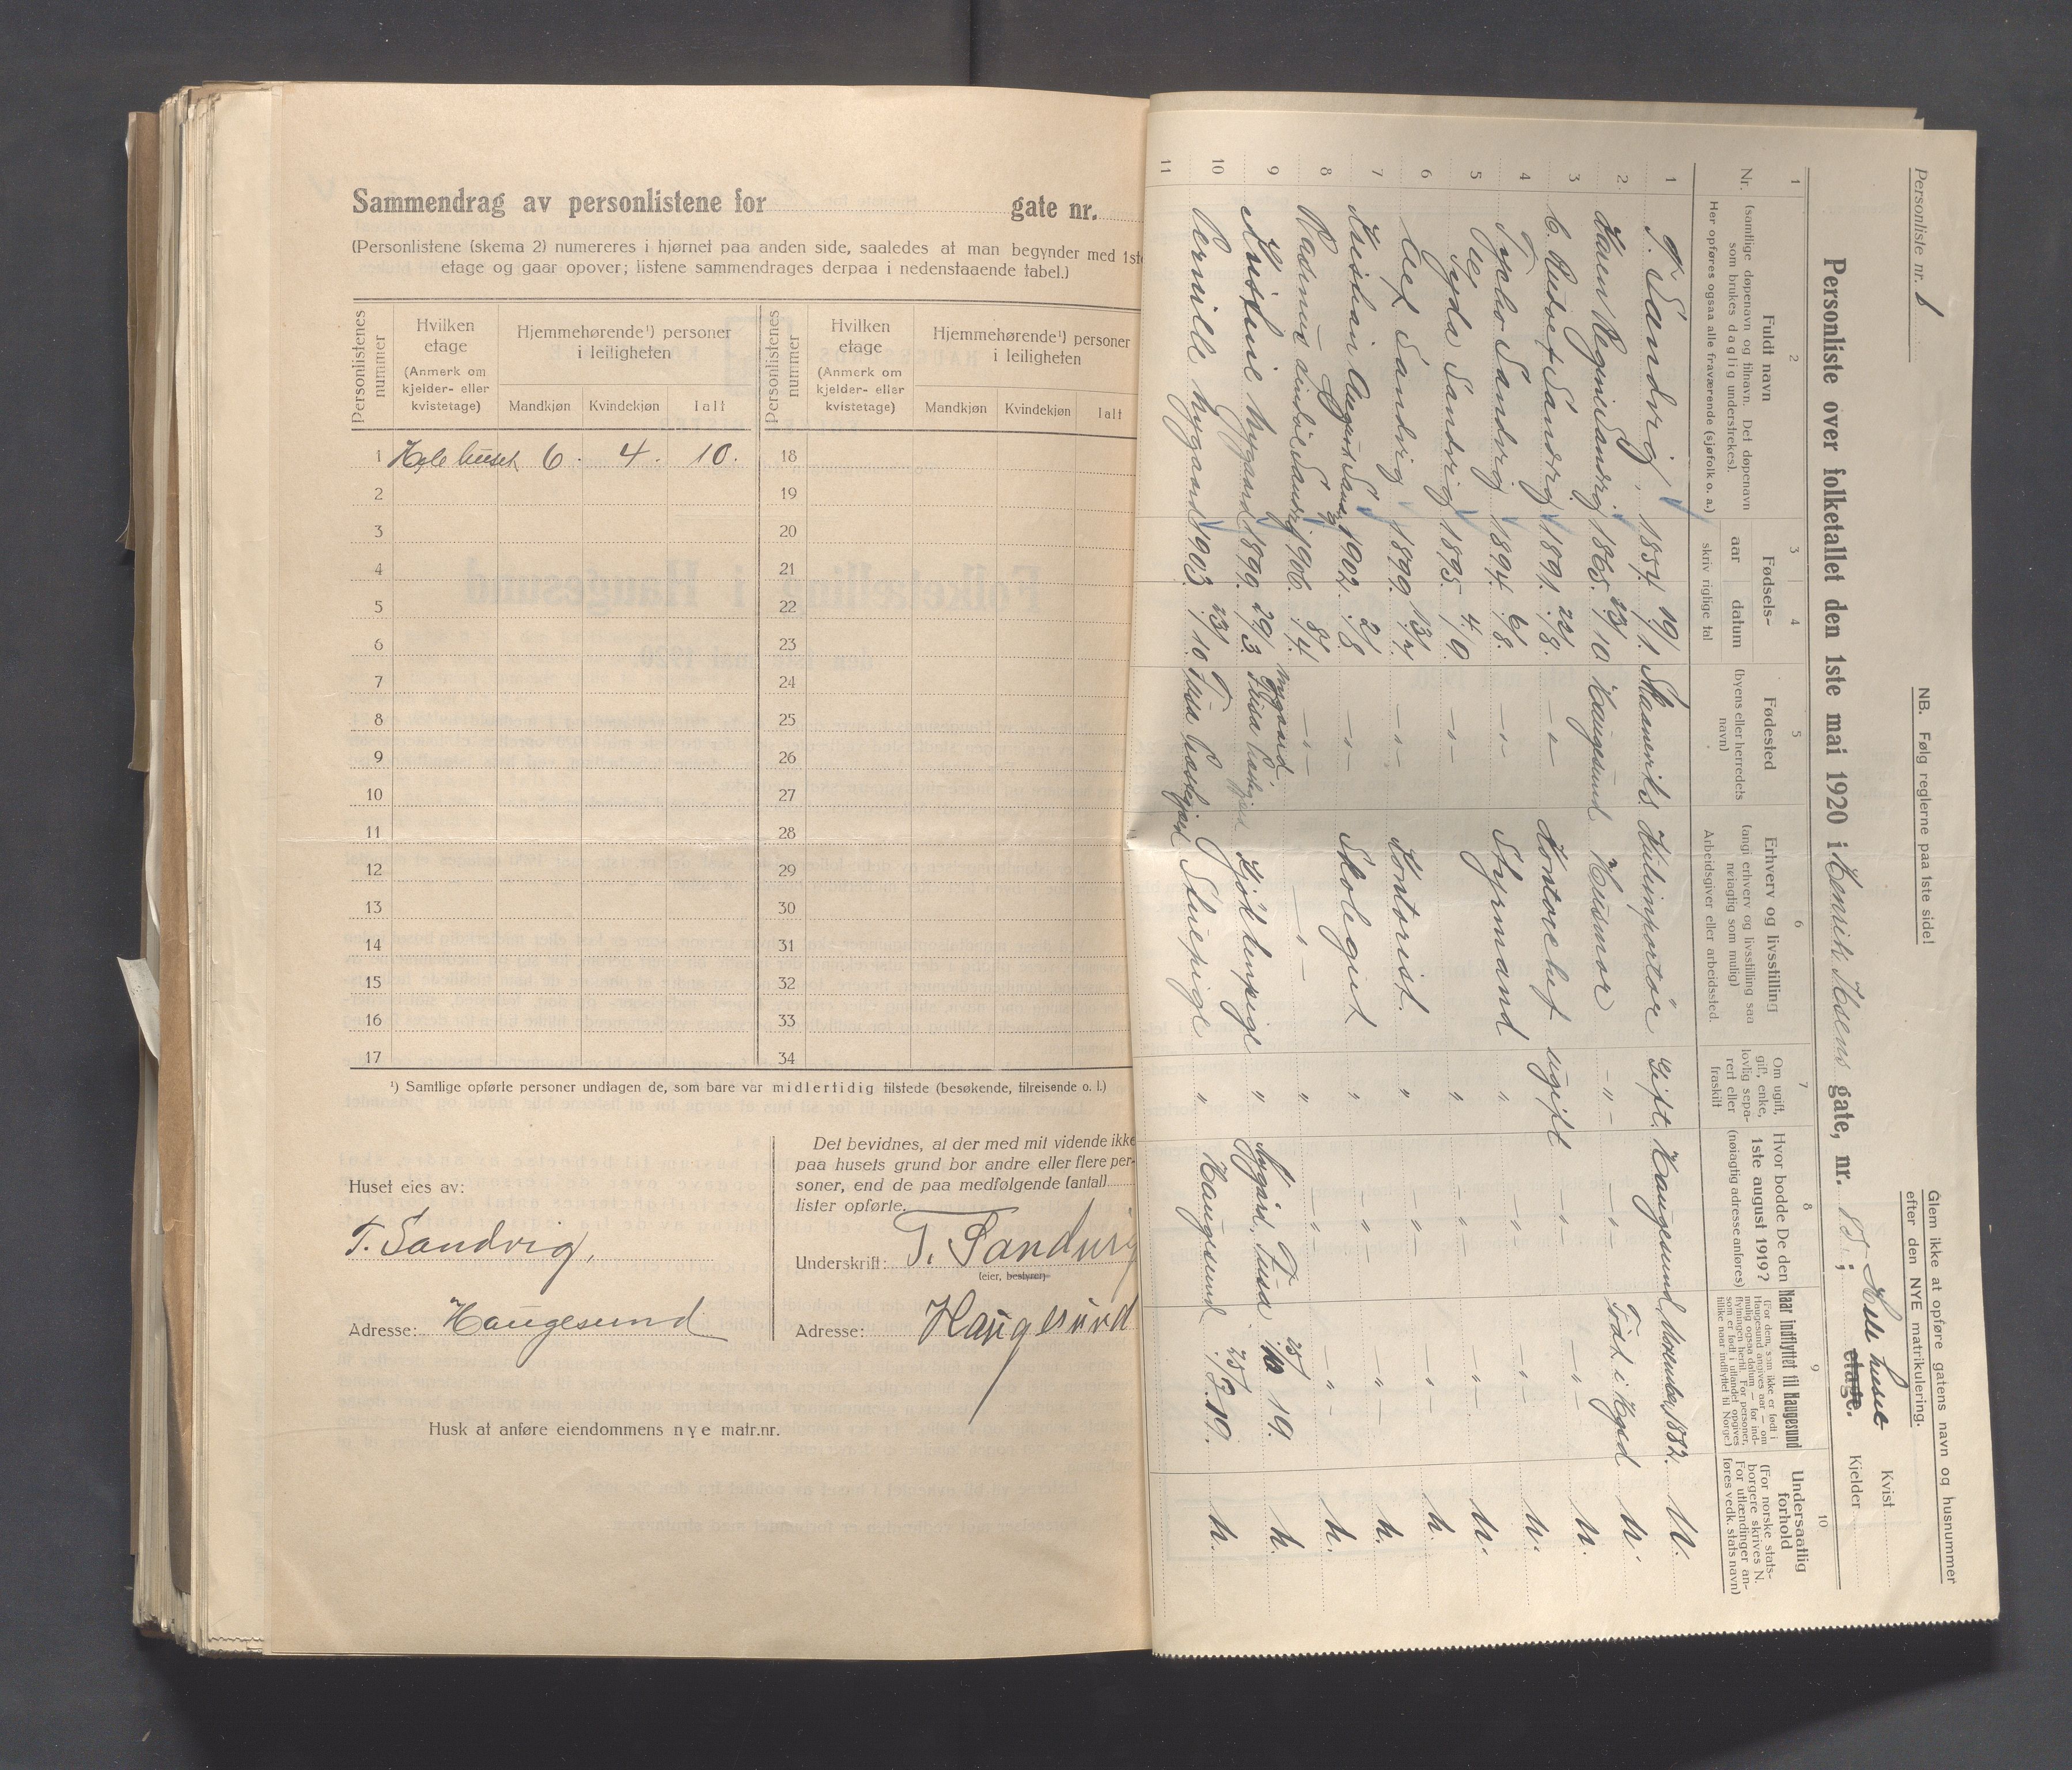 Sammendrag av personlistene for gate nr.
(Personlistene (skema 2) numereres i hjørnet paa anden side, saaledes at man begynder med 1ste
etage og gaar opover; listene sammendrages derpaa i nedenstaaende tabel.)
Personlistenes nummer
Hvilken etage (Anmerk om kjelder- eller kvistetage)
Hjemmehørende¹) personer i leiligheten
Mandkjøn Kvindekjøn Ialt
Personlistenes nummer
Hvilken etage (Anmerk om kjelder- eller kvistetage)
Hjemmehørende¹) personer i leiligheten
Mandkjøn Kvindekjøn Ialt
1 Hele huset 6. 4. 10. 18
2 19
3 20
4 21
5 22
6 23
7 24
8 25
9 26
10 27
11 28
12 29
13 30
14 31
15 32
16 33
17 34
¹) Samtlige opførte personer undtagen de, som bare var midlertidig tilstede (besøkende, tilreisende o. l.)
Huset eies av:
T. Sandvig,
Adresse: Haugesund
Det bevidnes, at der med mit vidende ikke
paa husets grund bor andre eller flere per-
soner, end de paa medfølgende (antal)
lister opførte.
Underskrift: T. Sandvig
(eier, bestyrer)
Adresse: Haugesund
Husk at anføre eiendommens nye matr.nr.
Personliste nr. 1
NB. Følg reglerne paa 1ste side!
Glem ikke at opføre gatens navn og husnummer
efter den NYE matrikulering.
Personliste over folketallet den 1ste mai 1920 i Henrik Ibsens gate, nr. 85; Hele huset etage.
Kvist
Kjelder
1 2 3 4 5 6 7 8 9 10
Nr.
Fuldt navn
(samtlige døpenavn og tilnavn. Det døpenavn
som brukes daglig understrekes).
Her opføres ogsaa alle fraværende (sjøfolk o. a.)
Fødsels-
aar datum
skriv riglige tal
Fødested
(byens eller herredets
navn)
Erhverv og livsstilling
(angi erhverv og livsstilling saa
nøiagtig som mulig)
Arbeidsgiver eller arbeidssted.
Om ugift,
gift, enke,
lovlig sepa-
rert eller
fraskilt
Hvor bodde De den
1ste august 1919?
(nøiagtig adresse anføres)
Naar indflyttet til Haugesund
(For dem, som ikke er født i
Haugesund angives aar — om
mulig ogsaa datum — for ind-
flytningen hertil. For personer,
som er født i utlandet opgives
tillike naar indflyttet til Norge.)
Undersaatlig
forhold
(For norske stats-
borgere skrives N.
For utlændinger an-
føres vedk. stats navn)
1 T. Sandvig, 1854. 19/1. Skaanevik. Kulimportør Gift. Haugesund, November 1882. N.
2. Karen Regine Sandvig 1865. 23/10 Haugesund. Husmor -"- -"- Född i Hgsd N.
3 C. Rudolf Sandvig 1891. 22/8. -"- Kontorchef ugift -"- -"- N.
4 Tycho Sandvig 1894. 6/8. -"- Styrmand " -"- -"- N.
5 Aagda Sandvig 1895. 4/9. -"- " -"- -"- N.
6 Leif Sandvig 1899. 13/2 -"- Kontorist. " -"- -"- N.
7 Kristian August Sandvig 1902. 2/8 -"- Skolegut -"- -"- N.
8 Rasmus Sandvig 1906. 8/4. -"- -"- " -"- -"- N.
9 Kristine Nygaard 1899. 29/3 Nygaard, Kjøkkenpige " Nygård, 25/10 19. N.
10 Pernille Nygaard 1903. 23/10 Stuepige " Haugesund 25/8.19. N.
11